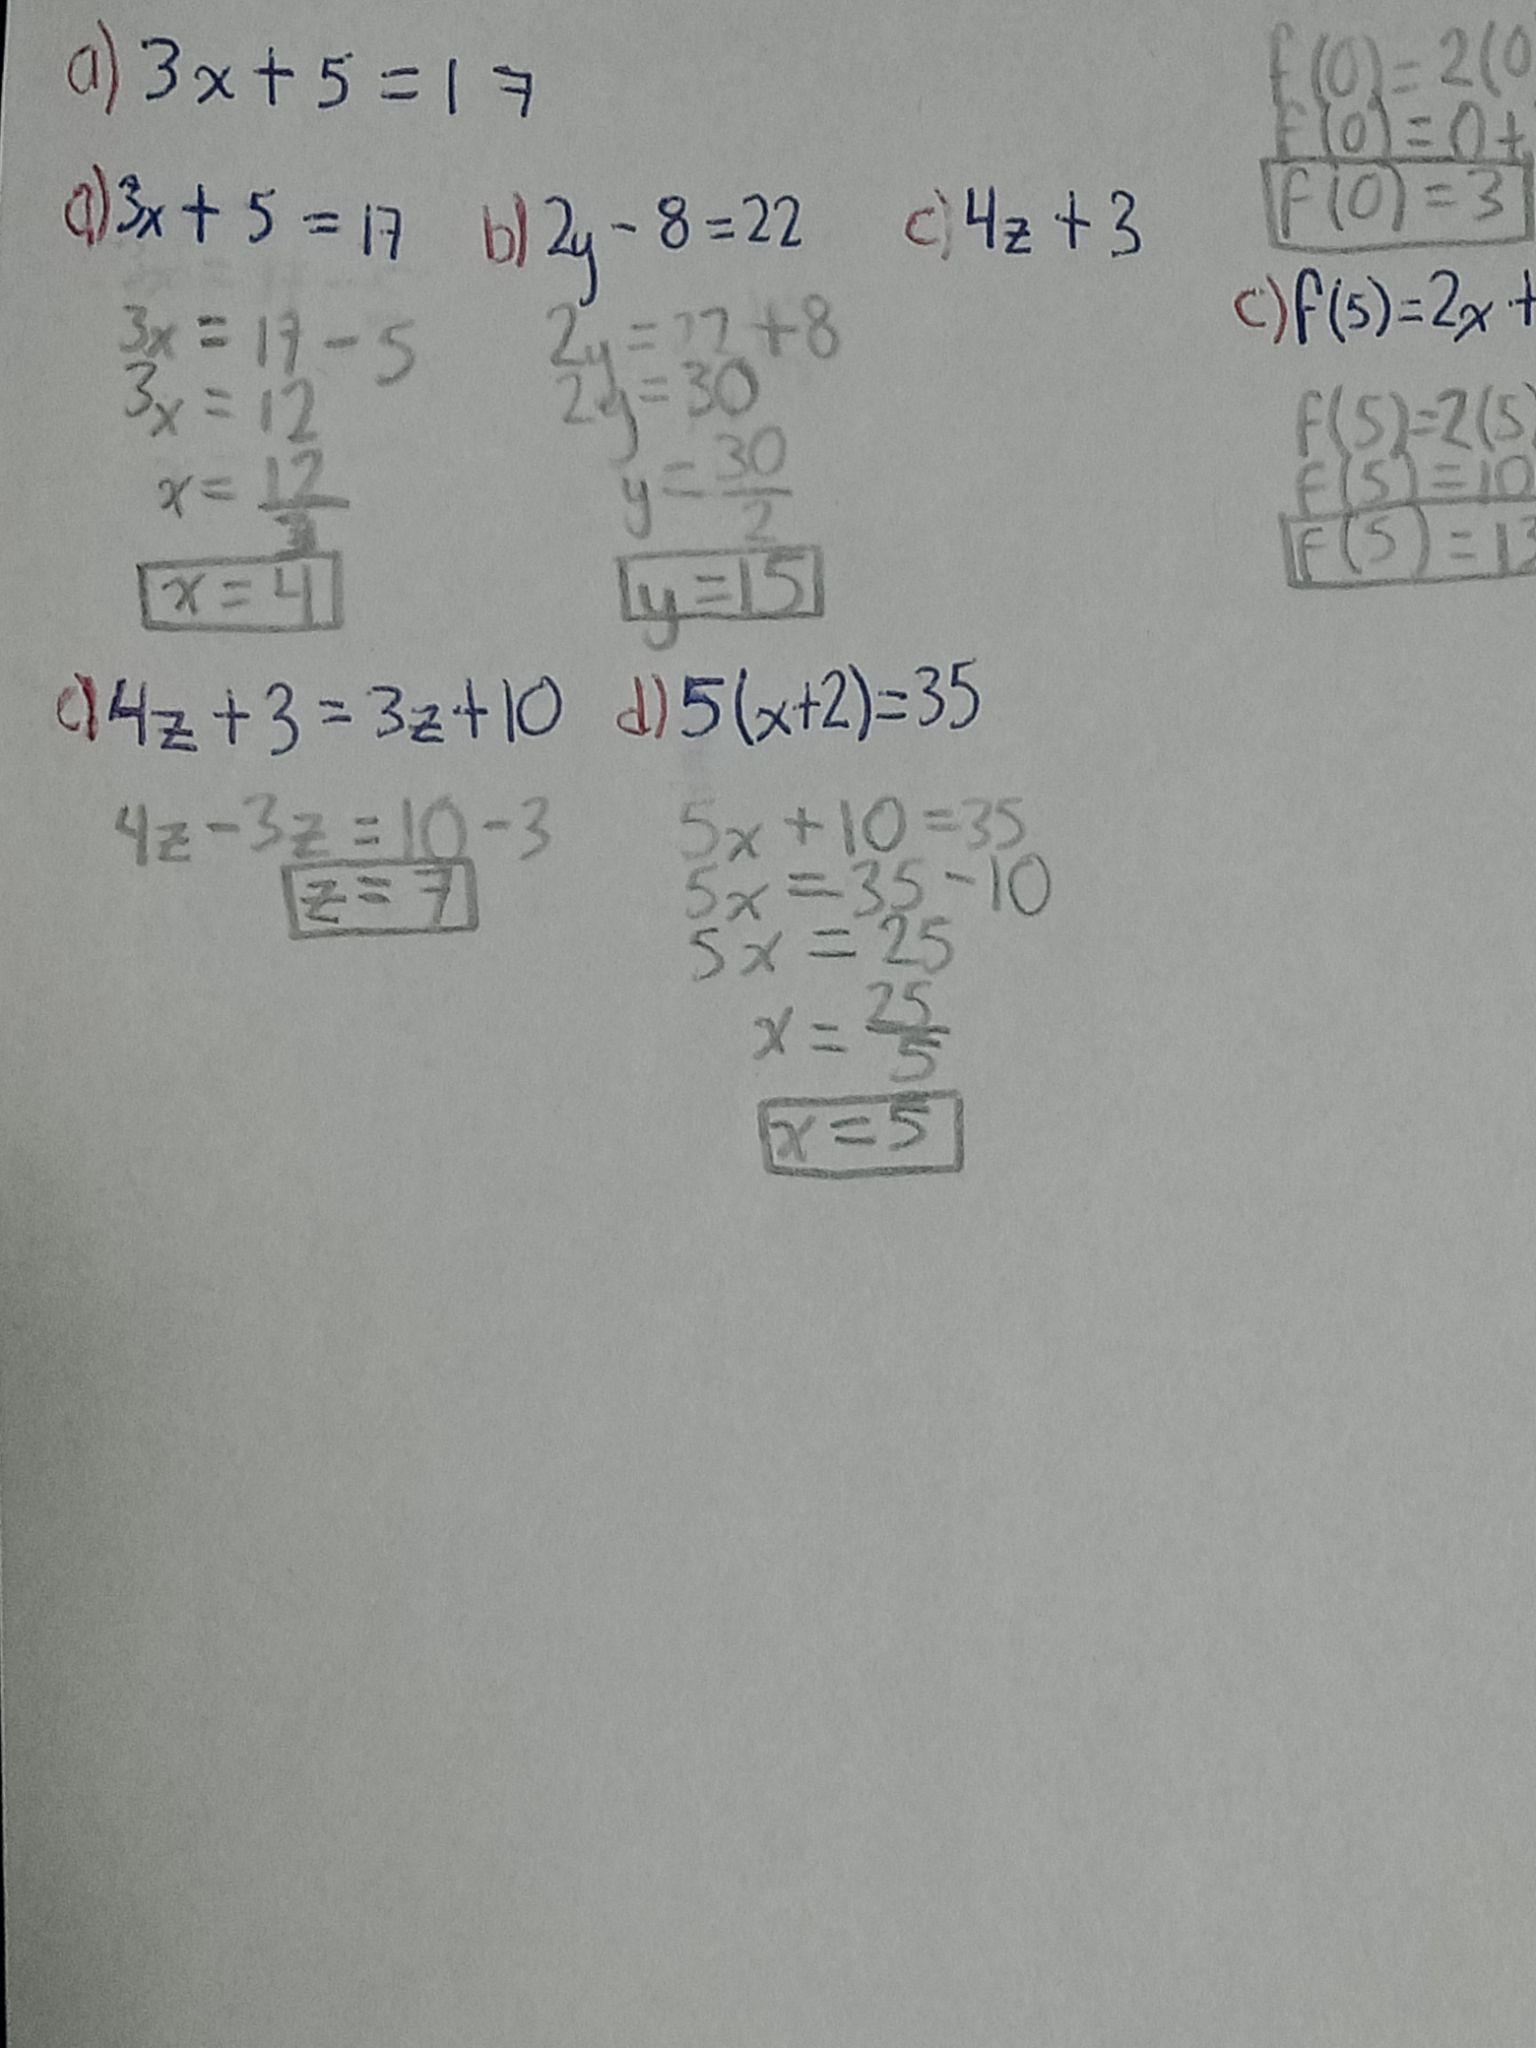 a) 3x + 5 = 17
a) 3x + 5 = 17
3x = 17 - 5
3x = 12
x = 12/3
x = 4
b) 2y - 8 = 22
2y = 22 + 8
2y = 30
y = 30/2
y = 15
c) 4z + 3
c) 4z + 3 = 3z + 10
4z - 3z = 10 - 3
z = 7
d) 5(x+2) = 35
5x + 10 = 35
5x = 35 - 10
5x = 25
x = 25/5
x = 5
f(0) = 2(0
f(0) = 0 +
f(0) = 3
c) f(5) = 2x +
f(5) = 2(5)
f(5) = 10
f(5) = 13